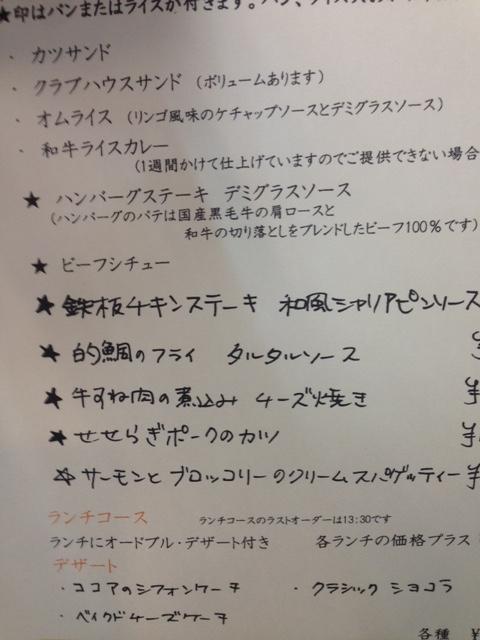 ★印はパンまたはライスが付きます。
・ カツサンド
・ クラブハウスサンド (ボリュームあります)
・ オムライス (リンゴ風味のケチャップソースとデミグラスソース)
・ 和牛ライスカレー
(1週間かけて仕上げていますのでご提供できない場合
★ ハンバーグステーキ デミグラスソース
(ハンバーグのパテは国産黒毛牛の肩ロースと
和牛の切り落としをブレンドしたビーフ100%です)
★ ビーフシチュー
★ 鉄板チキンステーキ 和風シャリアピンソース
★ 的鯛のフライ タルタルソース ¥
★ 牛すね肉の煮込み チーズ焼き ¥
★ せせらぎポークのカツ ¥
☆ サーモンとブロッコリーのクリームスパゲッティー ¥
ランチコース ランチコースのラストオーダーは13:30です
ランチにオードブル・デザート付き 各ランチの価格プラス
デザート
・ココアのシフォンケーキ ・クラシック ショコラ
・ベイクドチーズケーキ
各種 ¥